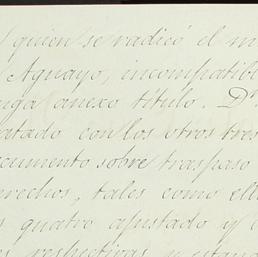 quien se radicó el m
Aguayo, incompatible
nga anexo título. Dn
atado con los otros tres
ocumento sobre traspaso
erechos, tales como ell
s quatro ajustado y c
es respectivas y estan